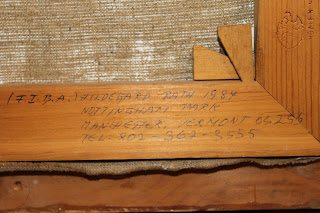 (F.I.B.A.) HILDEGARD ROTH 1984
NOTTINGHAM PARK
MANCHESTER, VERMONT 05256
TEL. 802-362-3535